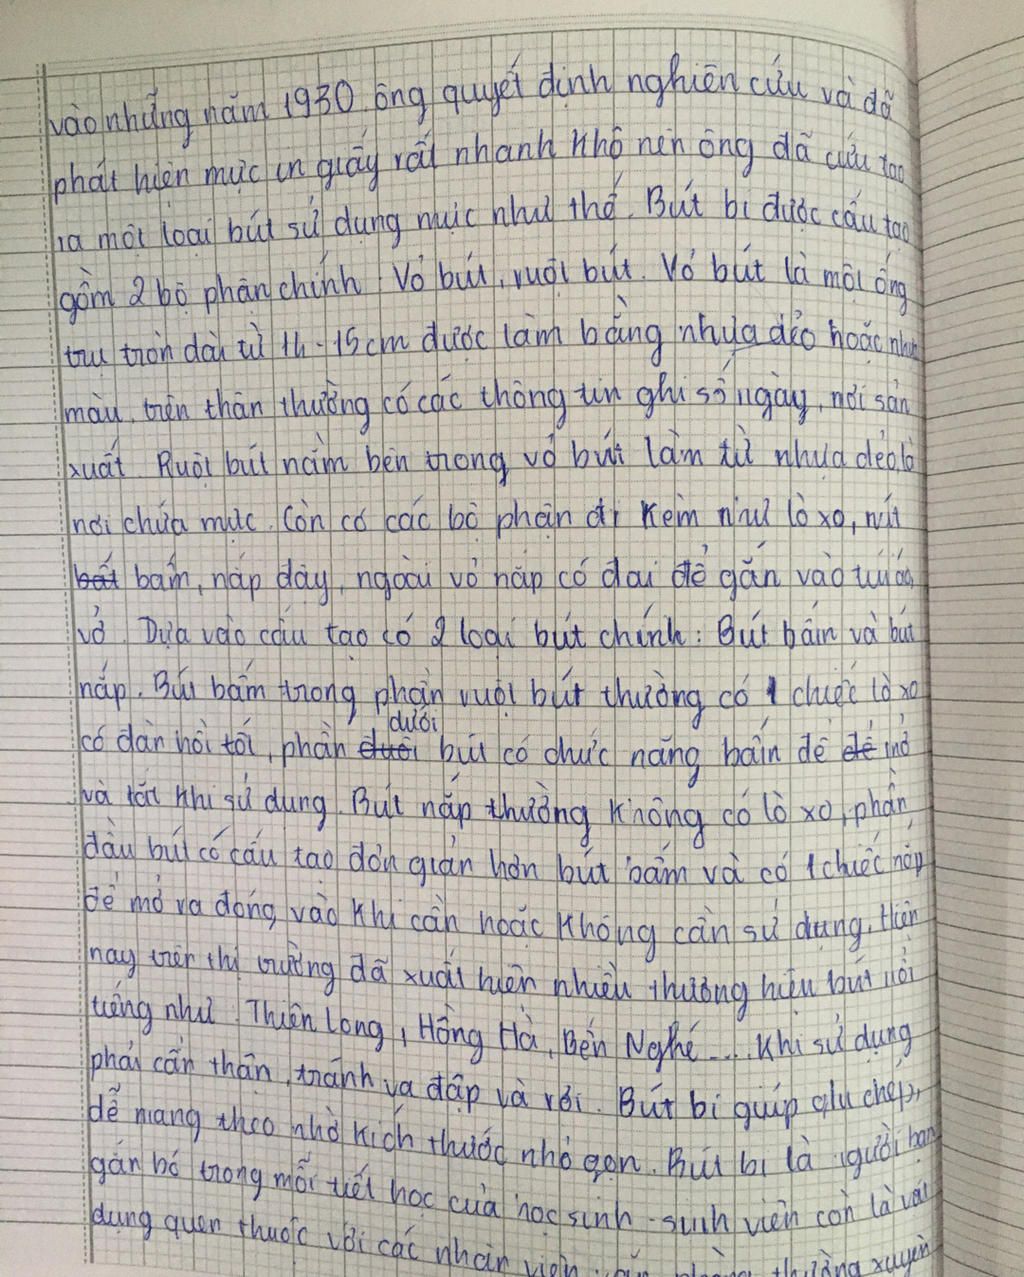 vào những năm 1930 ông quyết định nghiên cứu và đã
phát hiện mực in giấy rất nhanh khô nên ông đã cứu tao
ra một loại bút sử dụng mực như thế. Bút bi được cấu tạo
gồm 2 bộ phận chính: Vỏ bút, ruột bút. Vỏ bút là một ống
trụ tròn dài từ 14-15cm được làm bằng nhựa dẻo hoặc nhựa
màu, trên thân thường có các thông tin ghi số ngày, nơi sản
xuất. Ruột bút nằm bên trong vỏ bút làm từ nhựa dẻo là
nơi chứa mực. Còn có các bộ phận đi kèm như lò xo, nút
bấm, nắp đậy, ngoài vỏ nắp có đai để gắn vào túi áo,
vở. Dựa vào cấu tạo có 2 loại bút chính: Bút bấm và bút
nắp. Bút bấm trong phần ruột bút thường có 1 chiếc lò xo
có đàn hồi tốt, phần dưới bút có chức năng bấm để mở
và tắt khi sử dụng. Bút nắp thường không có lò xo, phần
đầu bút có cấu tạo đơn giản hơn bút bấm và có 1 chiếc nắp
để mở ra đóng vào khi cần hoặc không cần sử dụng. Hiện
nay trên thị trường đã xuất hiện nhiều thương hiệu bút nổi
tiếng như: Thiên Long, Hồng Hà, Bến Nghé.... Khi sử dụng
phải cẩn thận, tránh va đập và rơi. Bút bi giúp ghi chép,
dễ mang theo nhờ kích thước nhỏ gọn. Bút bi là người bạn
gắn bó trong mỗi tiết học của học sinh - sinh viên còn là vật
dụng quen thuộc với các nhân viên thường xuyên